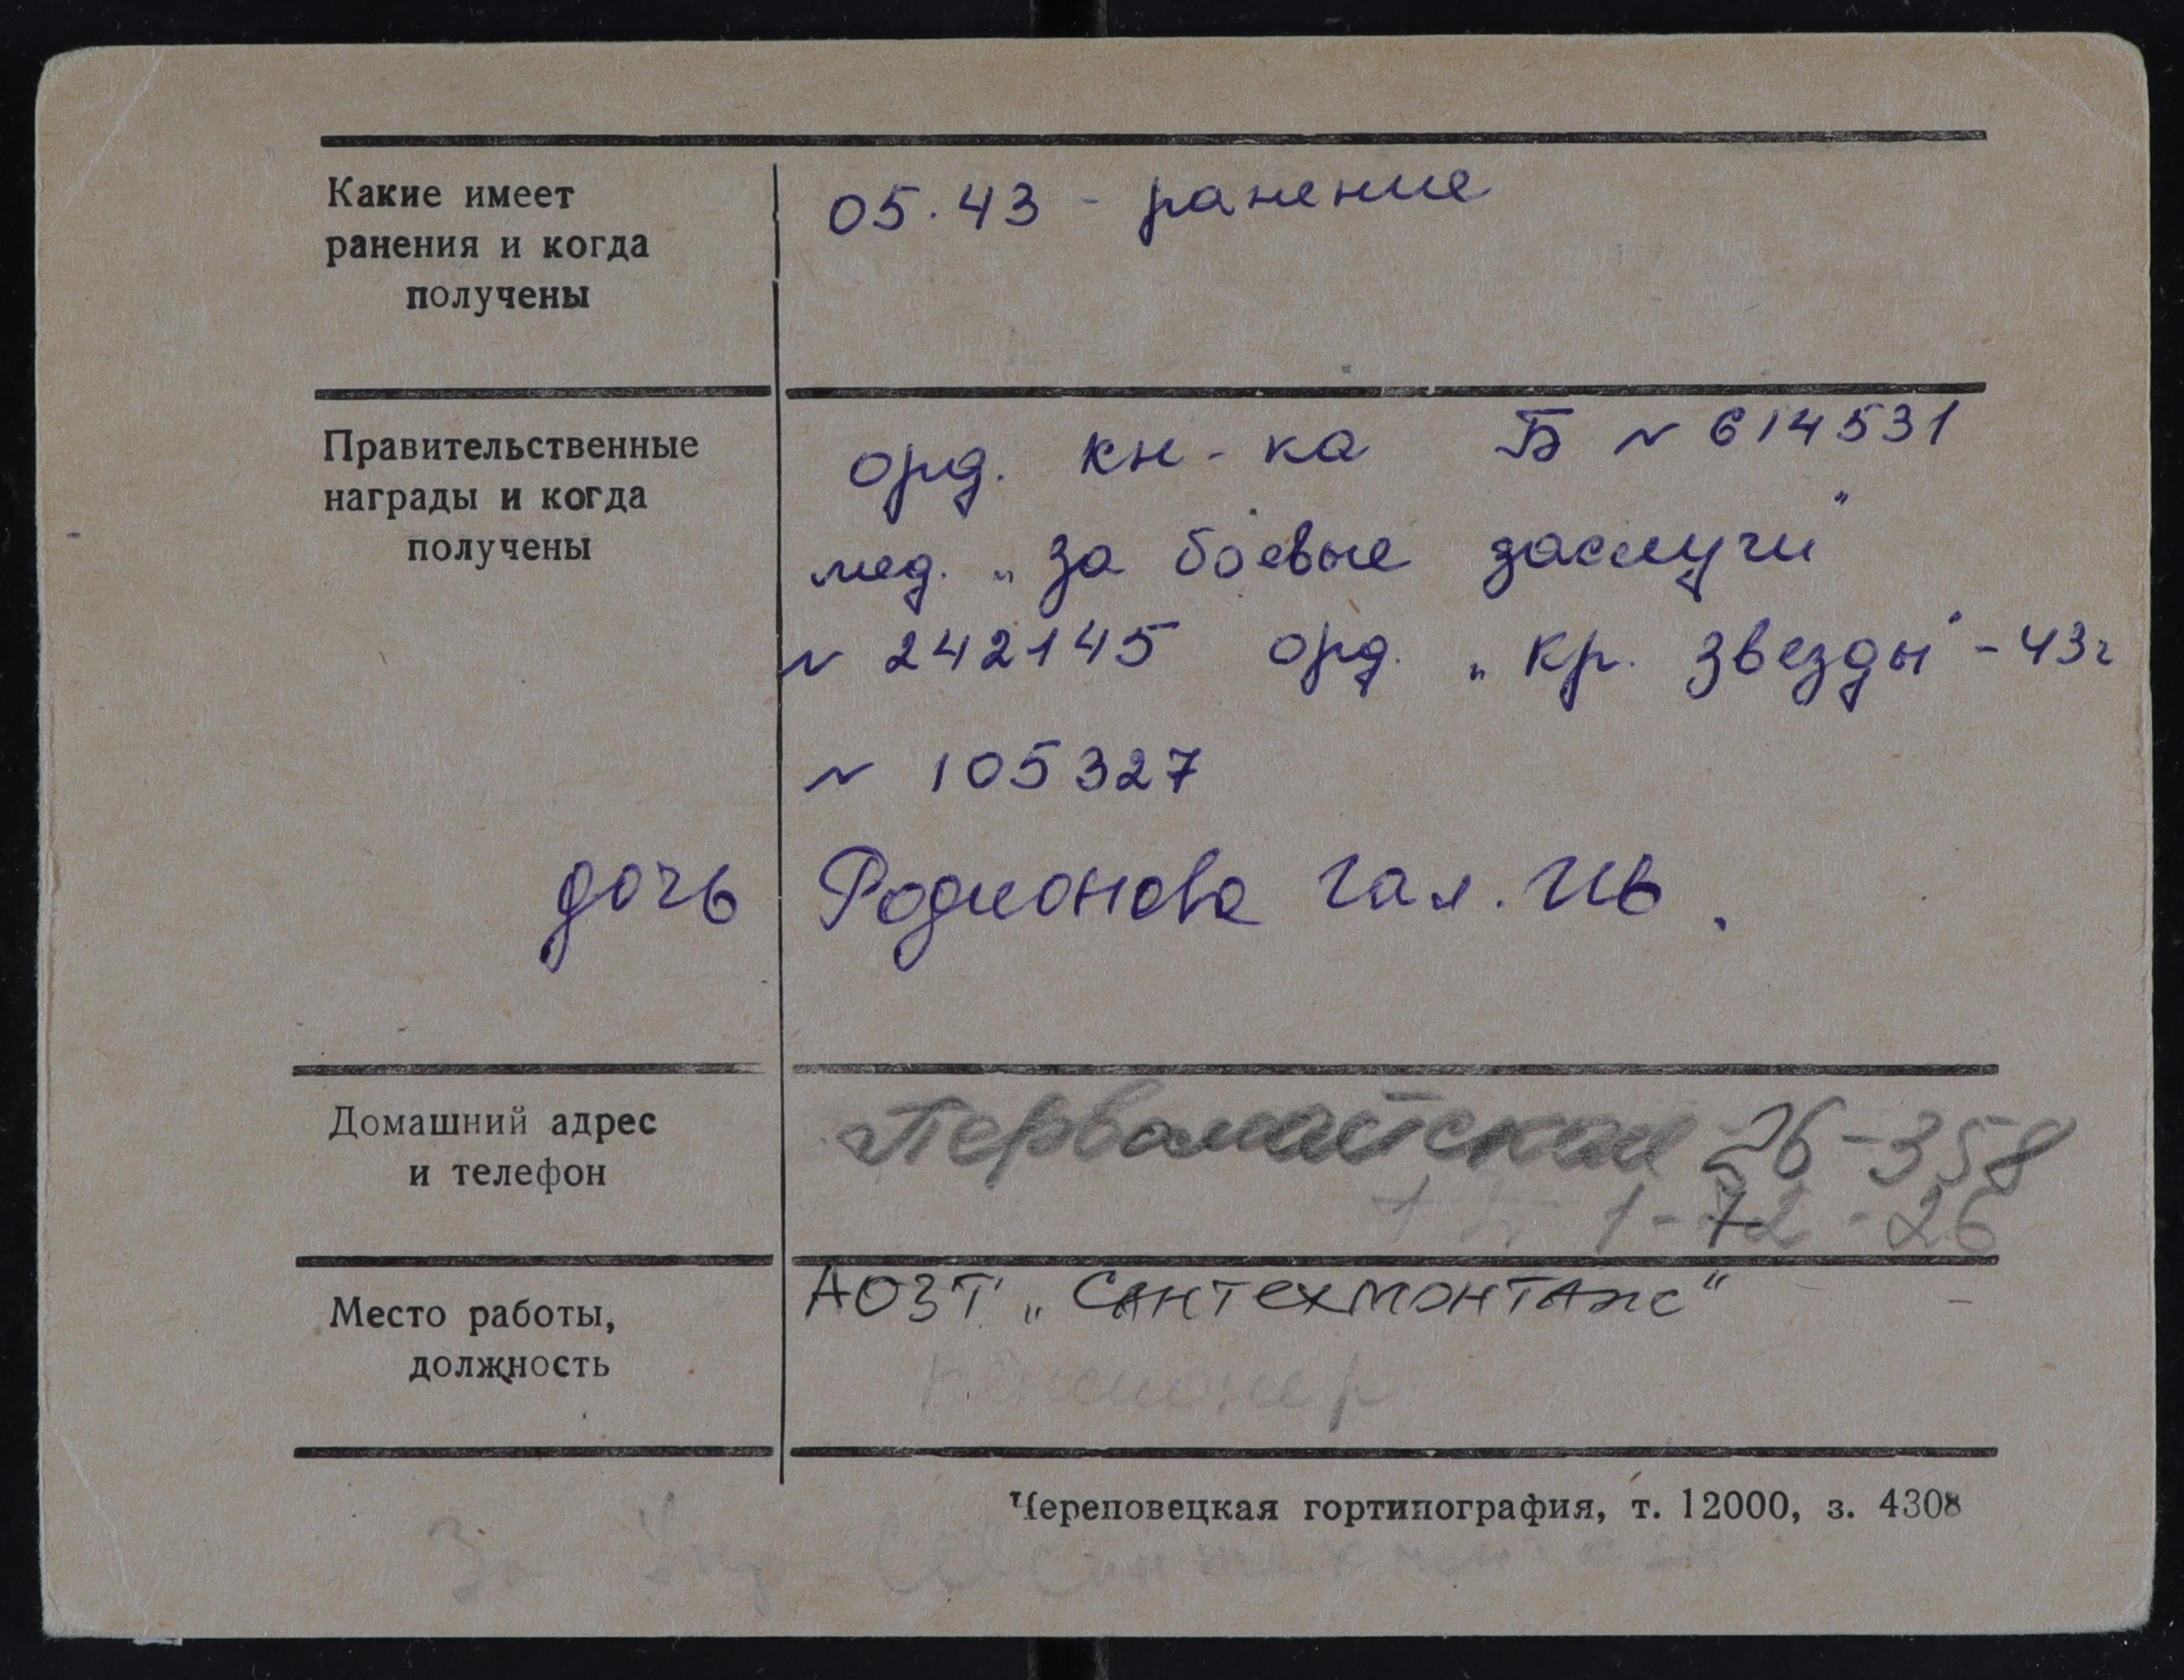 Какие имеет
ранения и когда
получены
05.43 - ранение
Правительственные
награды и когда
получены
орд. кн-ка Б № 614531
мед. „за боевые заслуги"
№ 242145 орд. „Кр. Звезды" - 43г
№ 105327
дочь Родионова Гал. Ив.
Домашний адрес
и телефон
Первомайская 26-358
1-72-26
Место работы,
должность
АОЗТ „Сантехмонтаж"
пенсионер
Череповецкая гортипография, т. 12000, з. 4308